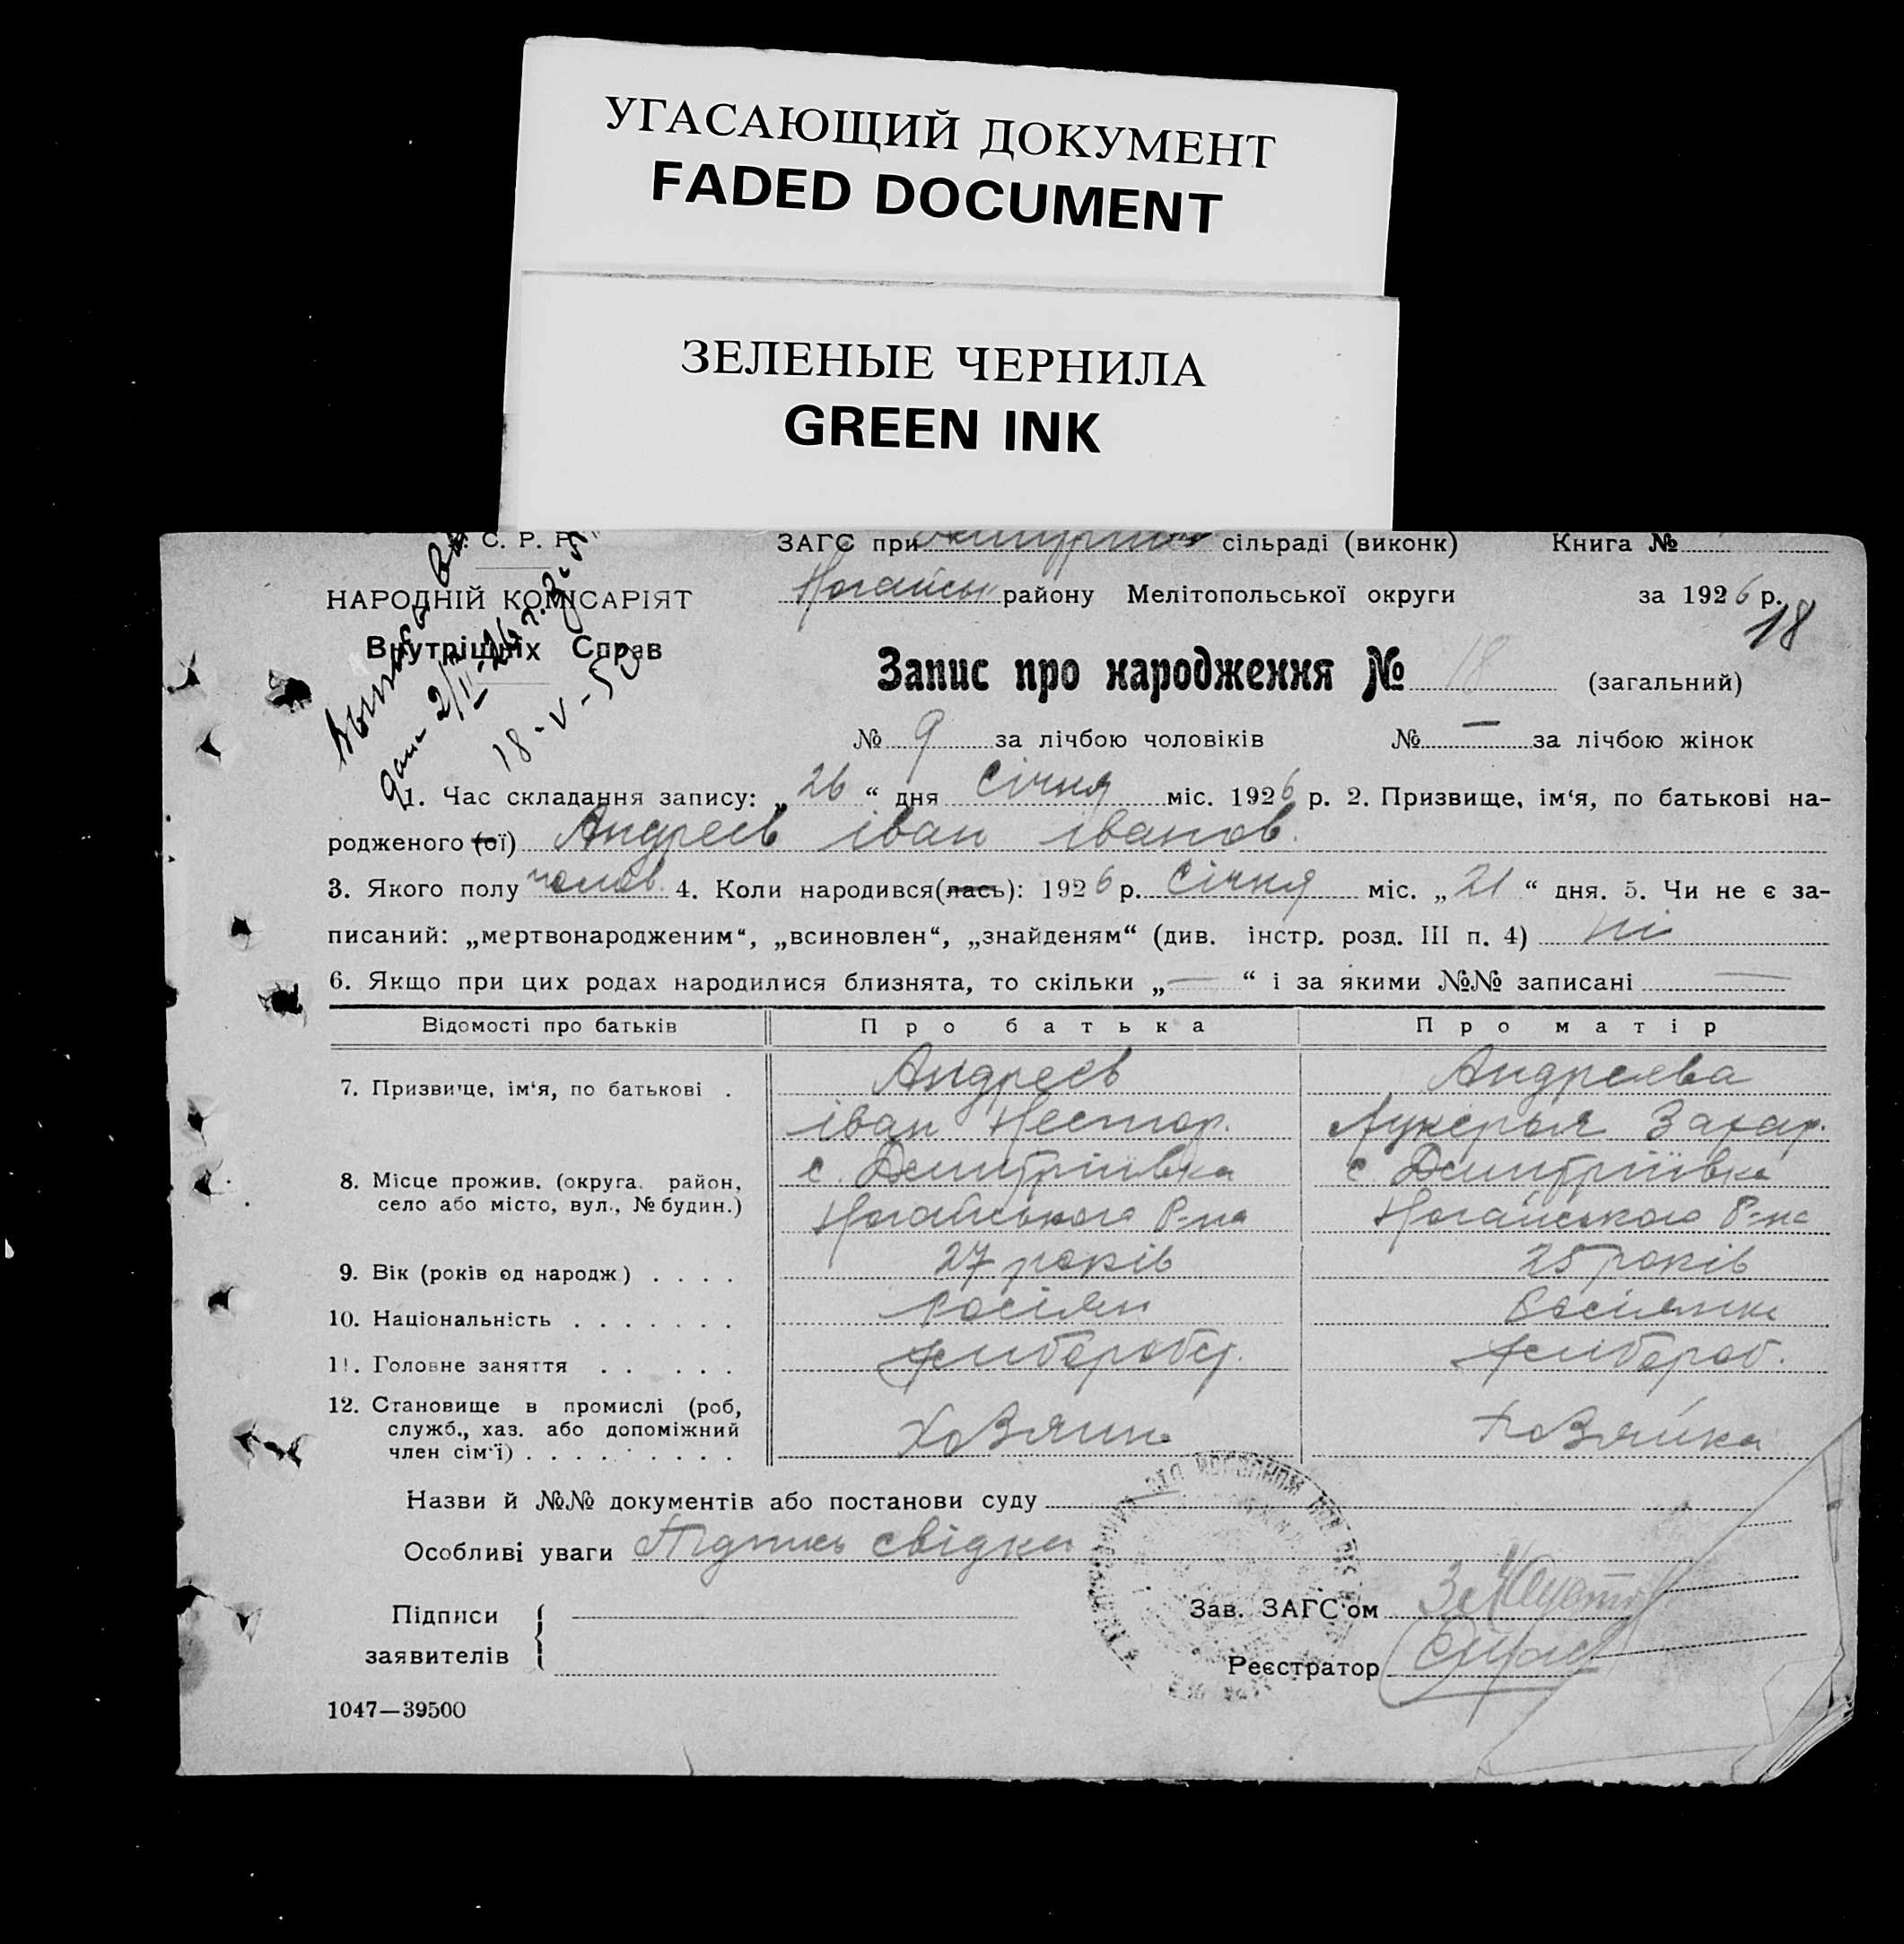 УГАСАЮЩИЙ ДОКУМЕНТ
FADED DOCUMENT
ЗЕЛЕНЫЕ ЧЕРНИЛА
GREEN INK
С. Р. Р. ЗАГС при сільраді (виконк) Книга №
НАРОДНІЙ КОМІСАРІЯТ
Внутрішніх Справ
району Мелітопольської округи за 1926 р.
18
18-V-5
Запис про народження № 18 (загальний)
№ 9 за лічбою чоловіків № — за лічбою жінок
1. Час складання запису: „26“ дня Січня міс. 1926 р. 2. Призвище, ім‘я, по батькові на-
родженого (ої) Андреєв іван іванов.
3. Якого полу чолов. 4. Коли народився(лась): 1926 р. Січня міс. „21“ дня. 5. Чи не є за-
писаний: „мертвонародженим“, „всиновлен“, „знайденям“ (див. інстр. розд. III п. 4) ні
6. Якщо при цих родах народилися близнята, то скільки „—“ і за якими №№ записані —
Відомості про батьків Про батька Про матір
7. Призвище, ім‘я, по батькові . Андреєв Андреєва
іван Нестор. Лукерья Захар.
8. Місце прожив. (округа. район, село або місто, вул., № будин.) с. Дмитріївка с. Дмитріївка
Ногайського Р-на Ногайського Р-на
9. Вік (років од народж) . . . . 27 років 25 років
10. Національність . . . . . . . росіян росіянка
11. Головне заняття . . . . . хлібороб.
12. Становище в промислі (роб,
служб., хаз. або допоміжний
член сім‘ї) . . . . . . . . . Хозяин Хозяйка
Назви й №№ документів або постанови суду
Особливі уваги Підпись свідка
Підписи
заявителів
Зав. ЗАГС‘ом
Реєстратор
1047—39500